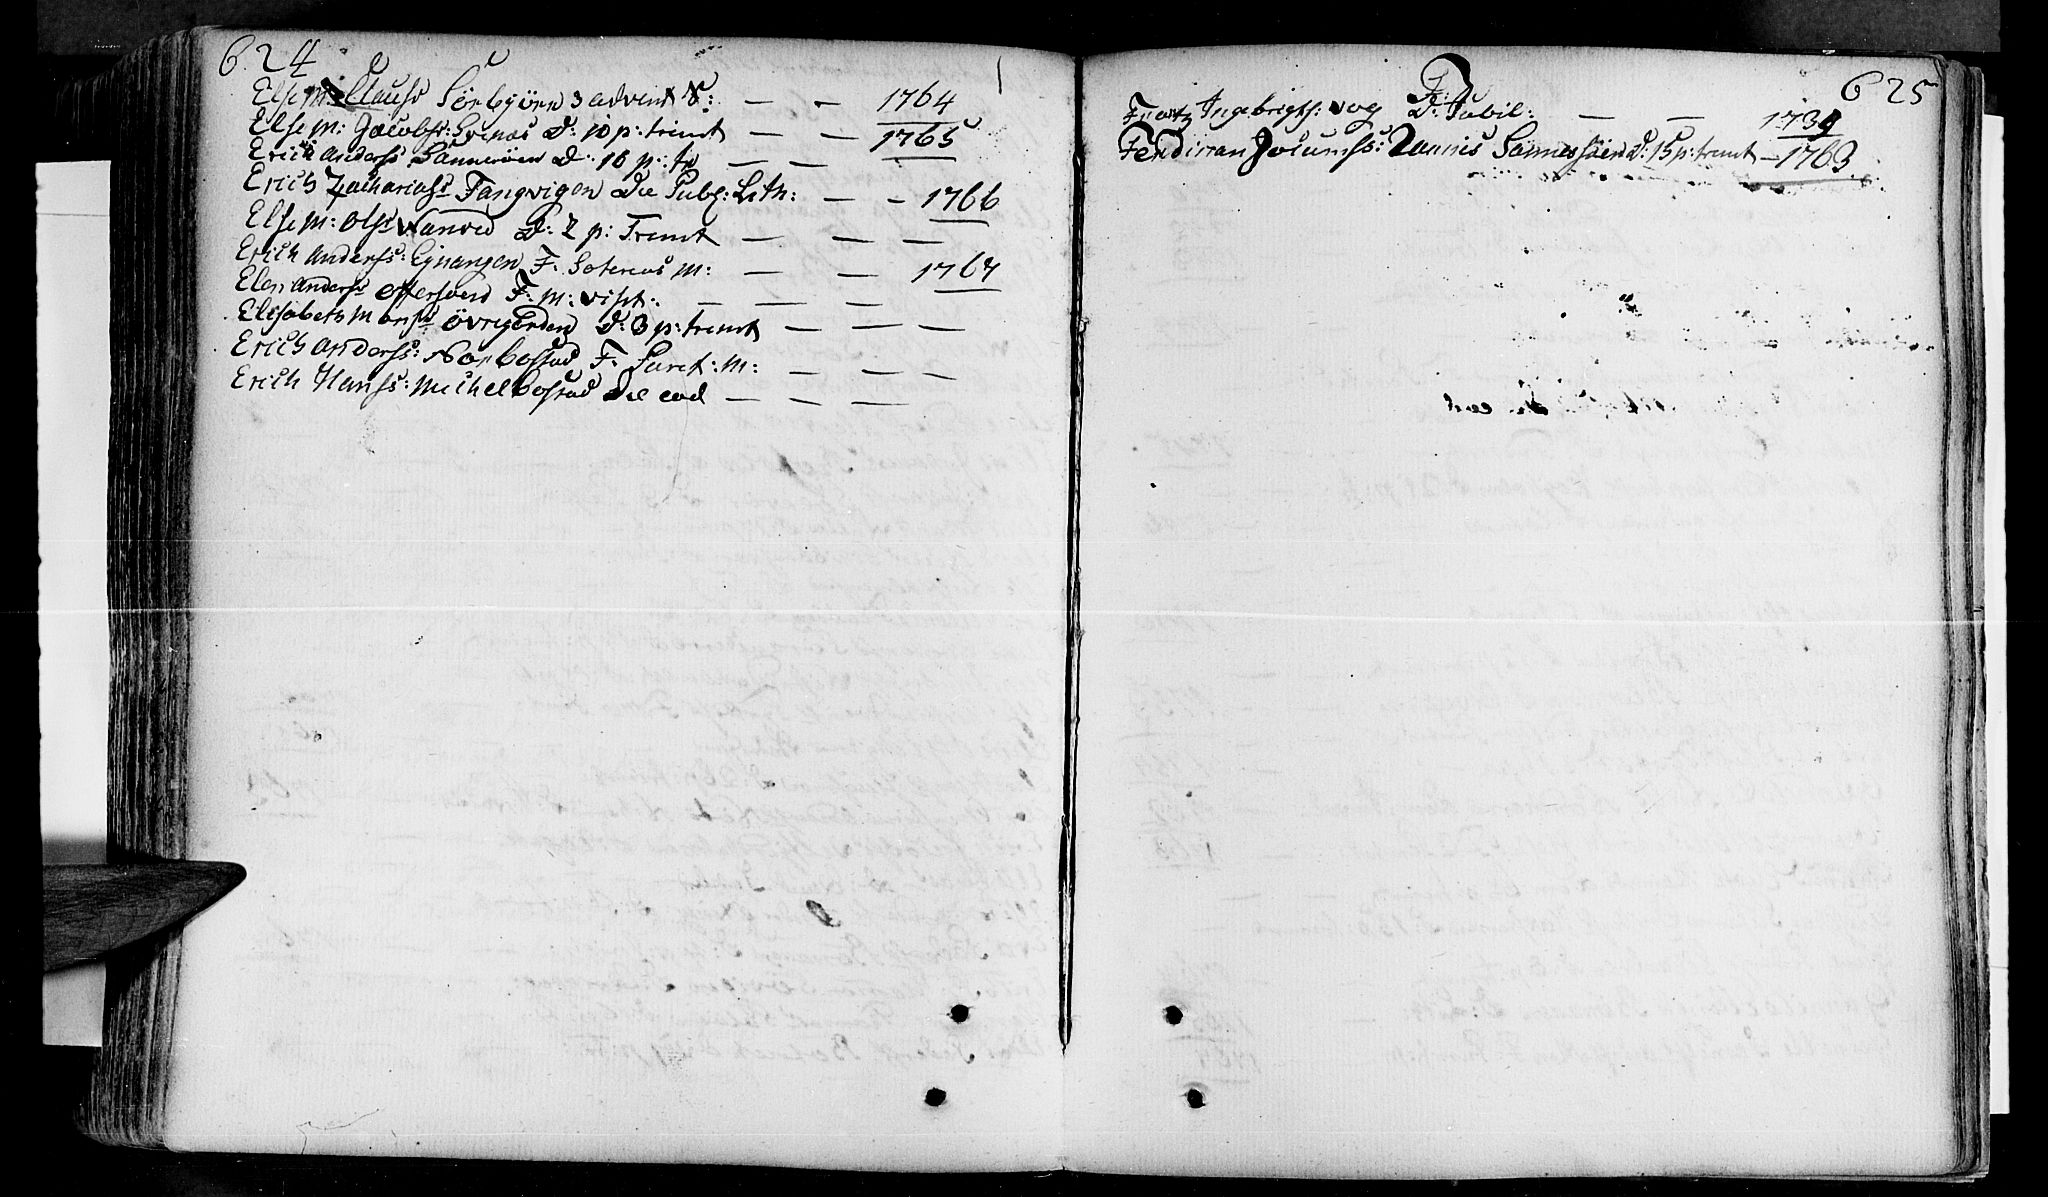 624
E
Else M: Clausd Sörbjören 3 advent S: — — 1764
Else m: Jacobsd: Svenæs D: 10 p: trinit — — 1765
Erich Anderss Sanneröen D: 10 p: tr — — —
Erich Zachariass Fangvigen Die Publ: Lith: — — 1766
Else m: Olsd Vanved D: 2 p: Trinit — — —
Erich Anderss: Egnangen F. Soterius m: — — 1767
Elen Andersd Offersverd F: m: visit: — — —
Elisabeth Monsd Övregorden D: 3 p: trinit — — —
Erich Anderss: Norbostad F. Puret: M: — — —
Erich Hanss: Michelbostad Die eod — — —
625
F:
Frantz Ingebrigts: vog D: Jubil: — — 1734
Ferdinan Jocumss: Sannessöen D: 15 p: trinit — 1763